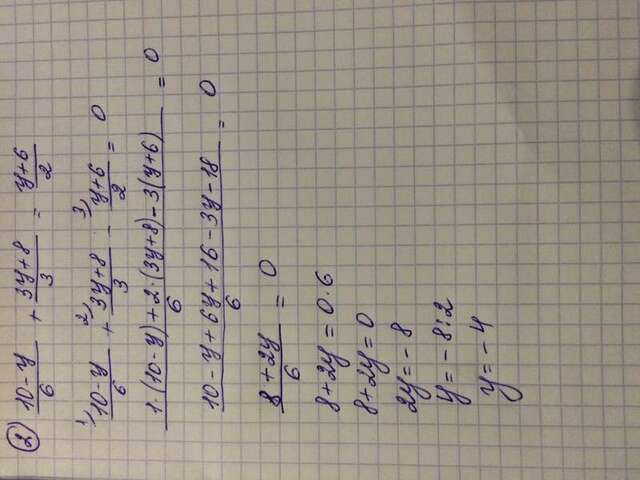 2) (10-y)/6 + (3y+8)/3 = (y+6)/2
1) (10-y)/6 + 2) (3y+8)/3 - 3) (y+6)/2 = 0
(1·(10-y)+2·(3y+8)-3(y+6))/6 = 0
(10-y+6y+16-3y-18)/6 = 0
(8+2y)/6 = 0
8+2y = 0·6
8+2y = 0
2y = -8
y = -8:2
y = -4